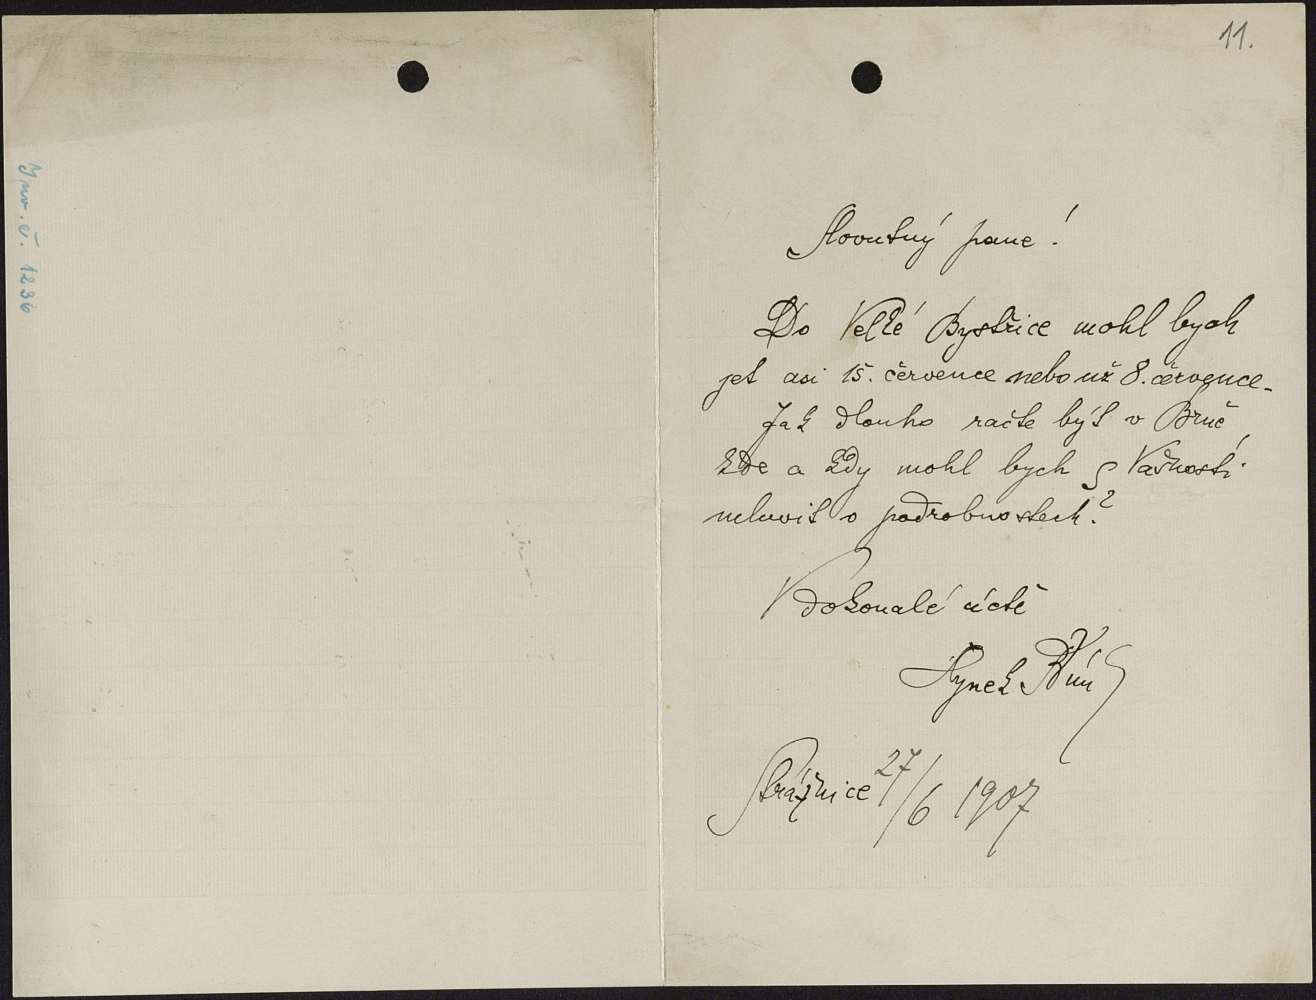 Inv. č. 1236
11.
Slovutný pane!
Do Velké Bystřice mohl bych
jet asi 15. července nebo už 8. července.
Jak dlouho račte být v Brně
kde a kdy mohl bych s Vašností
mluvit o podrobnostech?
V dokonalé úctě
Hynek Bím
Strážnice 27/6 1907